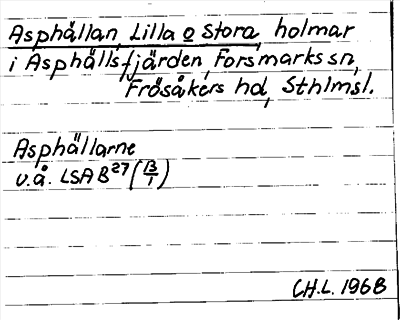 Asphällan, Lilla o Stora, holmar
i Asphällsfjärden, Forsmarks sn,
Frösåkers hd, Sthlmsl.
Asphällarne
u.å. LSA B27 (B/1)
CH.L. 1968